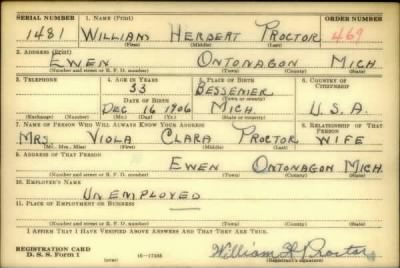 SERIAL NUMBER 1. NAME (Print) ORDER NUMBER
1481 WILLIAM HERBERT PROCTOR 469
(First) (Middle) (Last)
2. ADDRESS (Print)
EWEN ONTONAGON MICH
(Number and street or R. F. D. number) (Town) (County) (State)
3. TELEPHONE 4. AGE IN YEARS 5. PLACE OF BIRTH 6. COUNTRY OF CITIZENSHIP
33 BESSEMER
(Town or county)
DATE OF BIRTH
DEC 16 1906 MICH. U.S.A.
(Exchange) (Number) (Mo.) (Day) (Yr.) (State or country)
7. NAME OF PERSON WHO WILL ALWAYS KNOW YOUR ADDRESS 8. RELATIONSHIP OF THAT PERSON
MRS VIOLA CLARA PROCTOR WIFE
(Mr., Mrs., Miss) (First) (Middle) (Last)
9. ADDRESS OF THAT PERSON
EWEN ONTONAGON MICH.
(Number and street or R. F. D. number) (Town) (County) (State)
10. EMPLOYER'S NAME
UNEMPLOYED
11. PLACE OF EMPLOYMENT OR BUSINESS
(Number and street or R. F. D. number) (Town) (County) (State)
I AFFIRM THAT I HAVE VERIFIED ABOVE ANSWERS AND THAT THEY ARE TRUE.
REGISTRATION CARD
D. S. S. Form 1 (over) 16—17105 William H Proctor
(Registrant's signature)